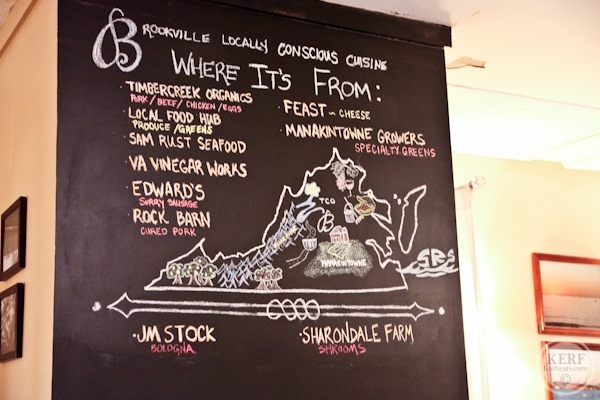 BROOKVILLE LOCALLY CONSCIOUS CUISINE
WHERE IT'S FROM:
· TIMBERCREEK ORGANICS
PORK / BEEF / CHICKEN / EGGS
· LOCAL FOOD HUB
PRODUCE / GREENS
· SAM RUST SEAFOOD
· VA VINEGAR WORKS
· EDWARD'S
SURRY SAUSAGE
· ROCK BARN
CURED PORK
· FEAST ~ CHEESE
· MANAKINTOWNE GROWERS
SPECIALTY GREENS
TCO
B
MANAKINTOWNE
SRS
· JM STOCK
BOLOGNA
· SHARONDALE FARM
SHROOMS
KERF
Katheats.com
©